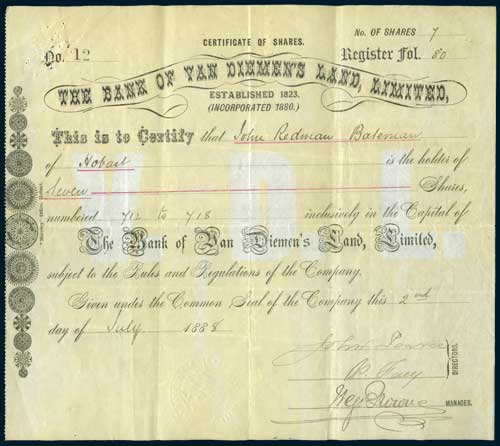 CERTIFICATE OF SHARES.
No. OF SHARES 7
No. 12
Register Fol. 80
THE BANK OF VAN DIEMEN'S LAND, LIMITED,
ESTABLISHED 1823.
(INCORPORATED 1880.)
This is to Certify that John Redman Bateman
of Hobart is the holder of
Seven Shares,
numbered 712 to 718 inclusively in the Capital of
The Bank of Van Diemen's Land, Limited,
subject to the Rules and Regulations of the Company.
Given under the Common Seal of the Company this 2nd
day of July 1888
John
DIRECTORS.
MANAGER.
V. D. L.